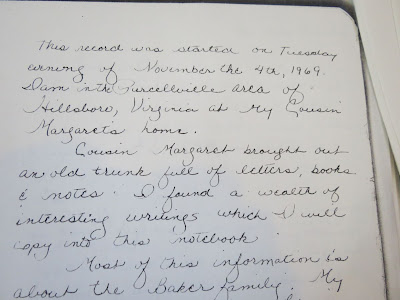 This record was started on Tuesday
evning of November the 4th, 1969.
I am in the Purcellville area of
Hillsboro, Virginia at My Cousin
Margarets home.
Cousin Margaret brought out
an old trunk full of letters, books
& notes. I found a wealth of
interesting writings which I will
copy into this notebook.
Most of this information is
about the Baker family. My